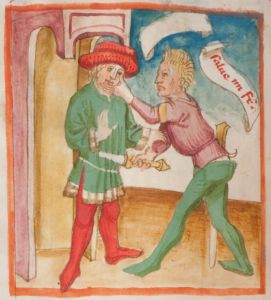 Salue mi fr̄